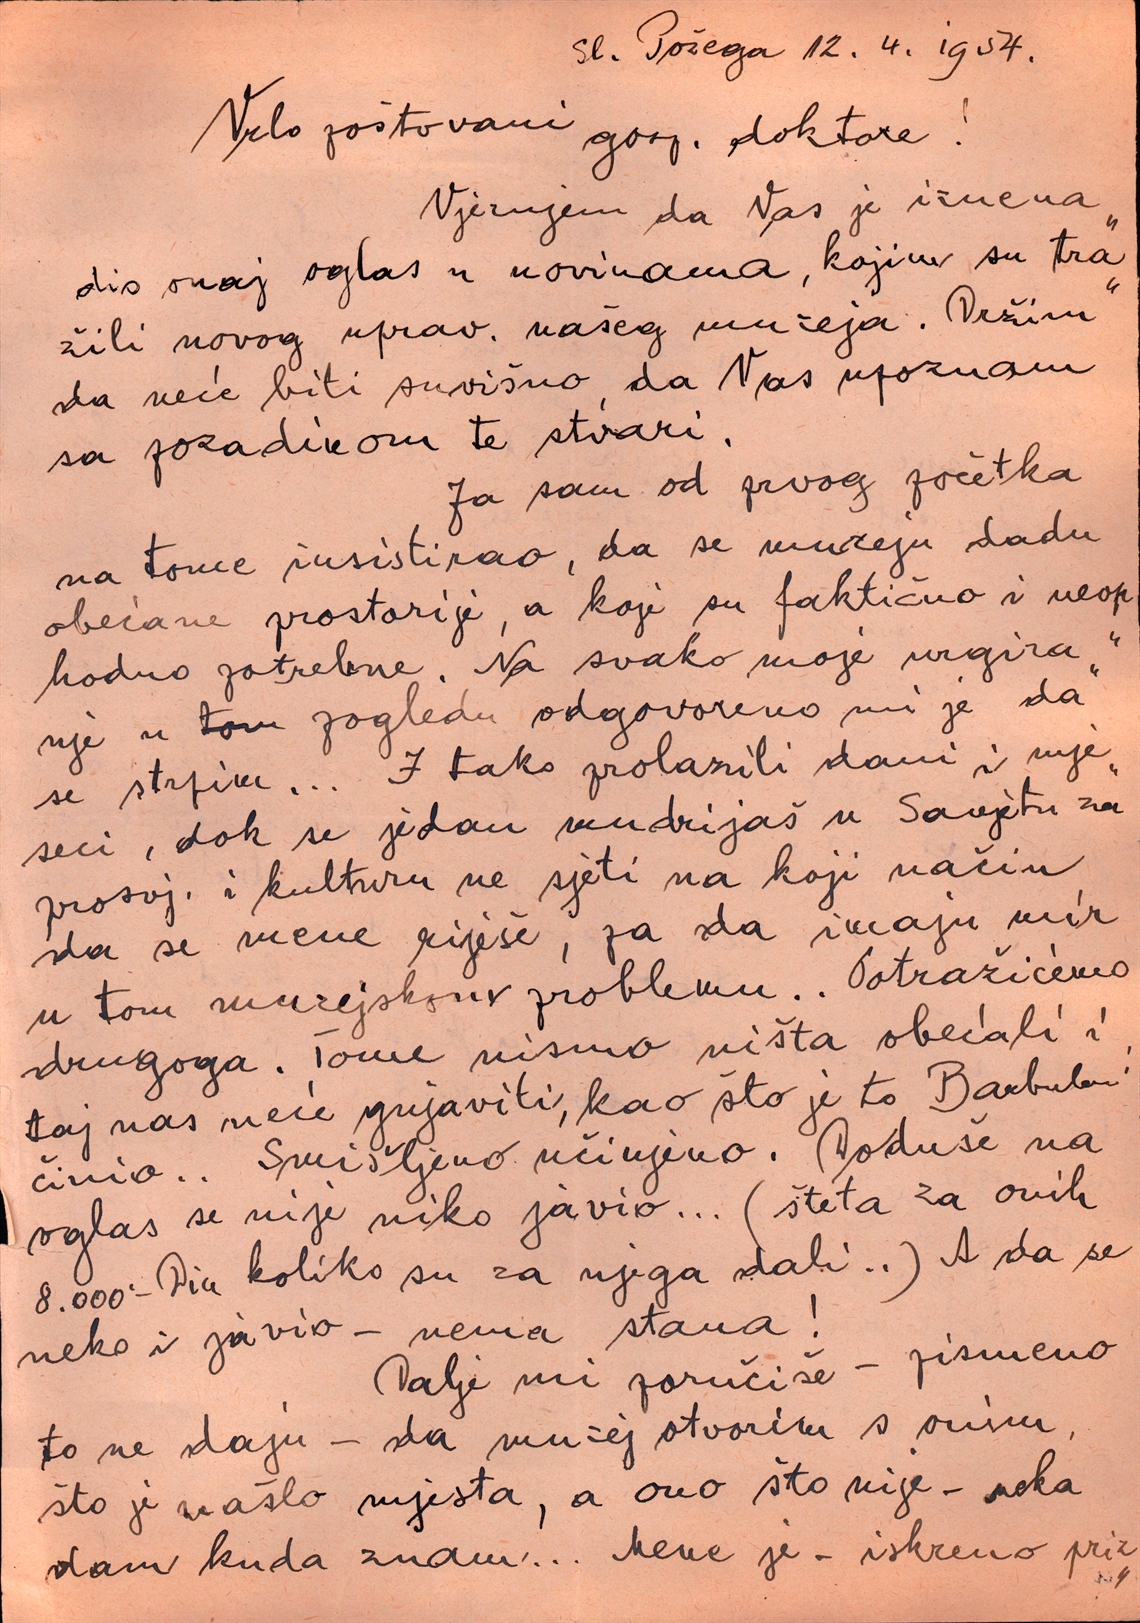 Sl. Požega 12. 4. 1954.
Vrlo poštovani gosp. doktore!
Vjerujem da Vas je iznena„
dio onaj oglas u novinama, kojim su tra„
žili novog uprav. našeg muzeja. Držim“
da neće biti suvišno, da Vas upoznam
sa pozadinom te stvari.
Ja sam od prvog početka
na tome insistirao, da se muzeju dadu
obećane prostorije, a koje su faktično i neop
hodno potrebne. Na svako moje urgira„
nje u tom pogledu odgovoreno mi je da“
se strpim... I tako prolazili dani i mje„
seci, dok se jedan mudrijaš u Savjetu za“
prosvj. i kulturu ne sjeti na koji način
da se mene riješe, pa da imaju mir
u tom muzejskom problemu.. Potražićemo
drugoga. Tome nismo ništa obećali i
taj nas neće gnjaviti, kao što je to
činio.. Smišljeno učinjeno. Doduše na
oglas se nije niko javio... (šteta za onih
8.000.- Din koliko su za njega dali..) A da se
neko i javio - nema stana!
Dalje mi poručiše - pismeno
to ne daju - da muzej otvorim s onim,
što je našlo mjesta, a ono što nije - neka
dam kuda znam... Mene je - iskreno priz„